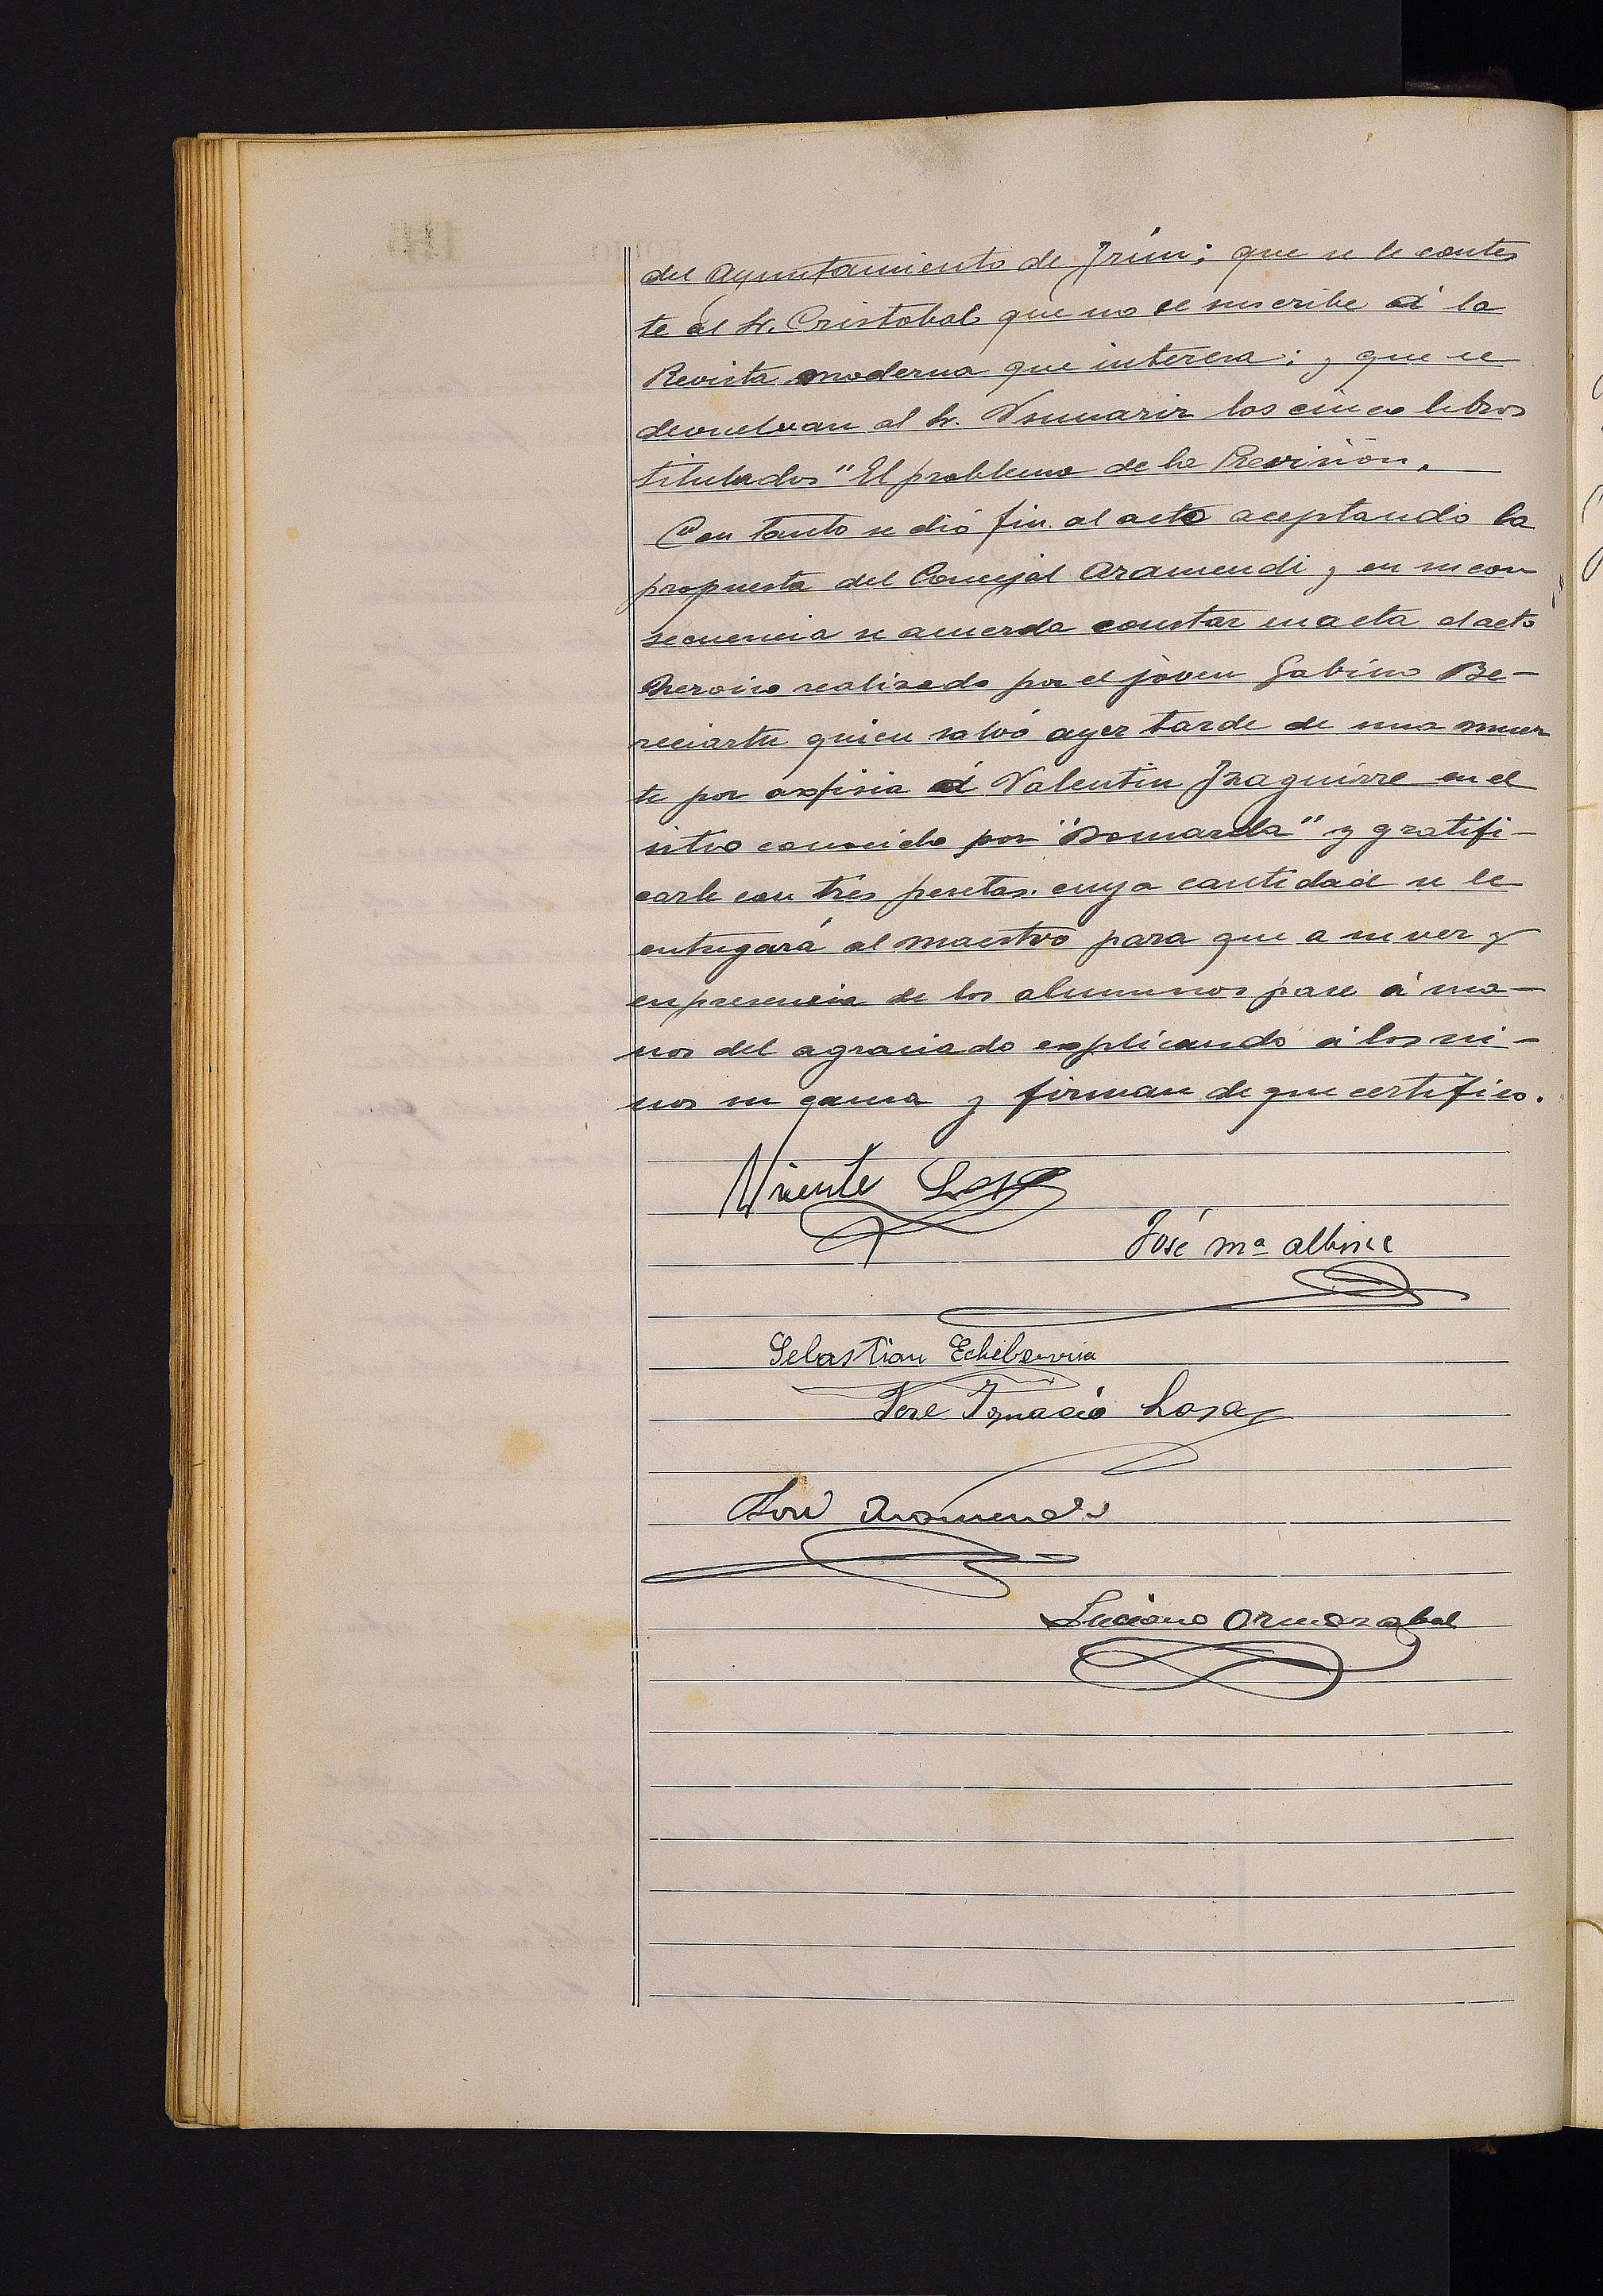 del Ayuntamiento de Irún; que se le contes
te al Sr. Cristobal que no se suscribe á la
Revista moderna que interesa; y que se
devuelvan al Sr. los cinco libros
titulados "El problema de la Previsión.
Con tanto se dió fin al acto aceptando la
propuesta del Concejal Aramendi y en su con
secuencia se acuerda constar en acta el acto
heroico realizado por el jóven Gabino Be-
reciartu quien salvó ayer tarde de una muer
te por axfisia á Valentin Izaguirre en el
sitio conocido por y gratifi-
carle con tres pesetas. cuya cantidad se le
entregará al maestro para que a su vez y
en presencia de los alumnos pase á ma-
nos del agraciado explicando á los ni-
nos su causa y firman de que certifico.
Vicente Lasa
José Mª Albisu
Sebastian Echeberria
José Ignacio Lasa
José Aramendi
Luciano Ormazabal